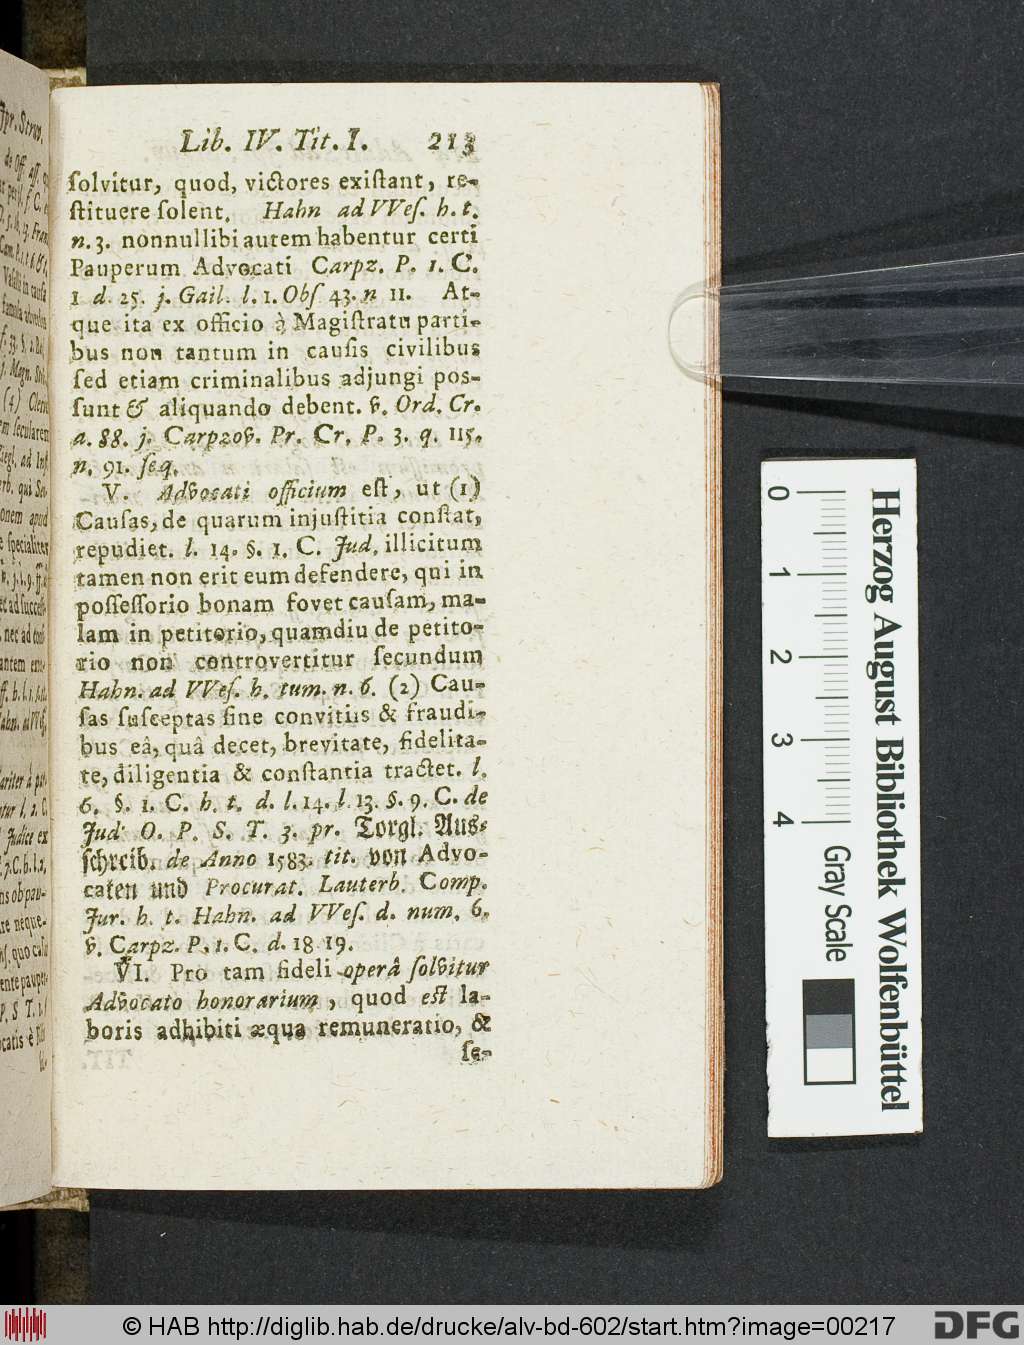 Lib. IV. Tit. I. 213
ſolvitur, quod, victores exiſtant, re-
ſtituere ſolent. Hahn ad VVeſ. h. t.
n. 3. nonnullibi autem habentur certi
Pauperum Advocati Carpz. P. 1. C.
1 d. 25. j. Gail. l. 1. Obſ 43. n 11. At-
que ita ex officio à Magiſtratu parti-
bus non tantum in cauſis civilibus
ſed etiam criminalibus adjungi poſ-
ſunt & aliquando debent. v. Ord. Cr.
a. 88. j. Carpzov. Pr. Cr. P. 3. q. 115.
n. 91. ſeq.
V. Advocati officium eſt, ut (1)
Cauſas, de quarum injuſtitia conſtat,
repudiet. l. 14. §. 1. C. Jud. illicitum
tamen non erit eum defendere, qui in
poſſeſſorio bonam fovet cauſam, ma-
lam in petitorio, quamdiu de petito-
rio non controvertitur ſecundum
Hahn. ad VVeſ. h. tum. n. 6. (2) Cau-
ſas ſuſceptas ſine convitiis & fraudi-
bus eâ, quâ decet, brevitate, fidelita-
te, diligentia & conſtantia tractet. l.
6. §. 1. C. h. t. d. l. 14. l. 13. §. 9. C. de
Jud. O. P. S. T. 3. pr. Torgl. Aus-
ſchreib. de Anno 1583. tit. von Advo-
caten und Procurat. Lauterb. Comp.
Jur. h. t. Hahn. ad VVeſ. d. num. 6.
v. Carpz. P. 1. C. d. 18 19.
VI. Pro tam fideli operâ ſolvitur
Advocato honorarium, quod eſt la-
boris adhibiti æqua remuneratio, &
ſe-
0
1
2
3
4
Gray Scale
Herzog August Bibliothek Wolfenbüttel
© HAB http://diglib.hab.de/drucke/alv-bd-602/start.htm?image=00217
DFG